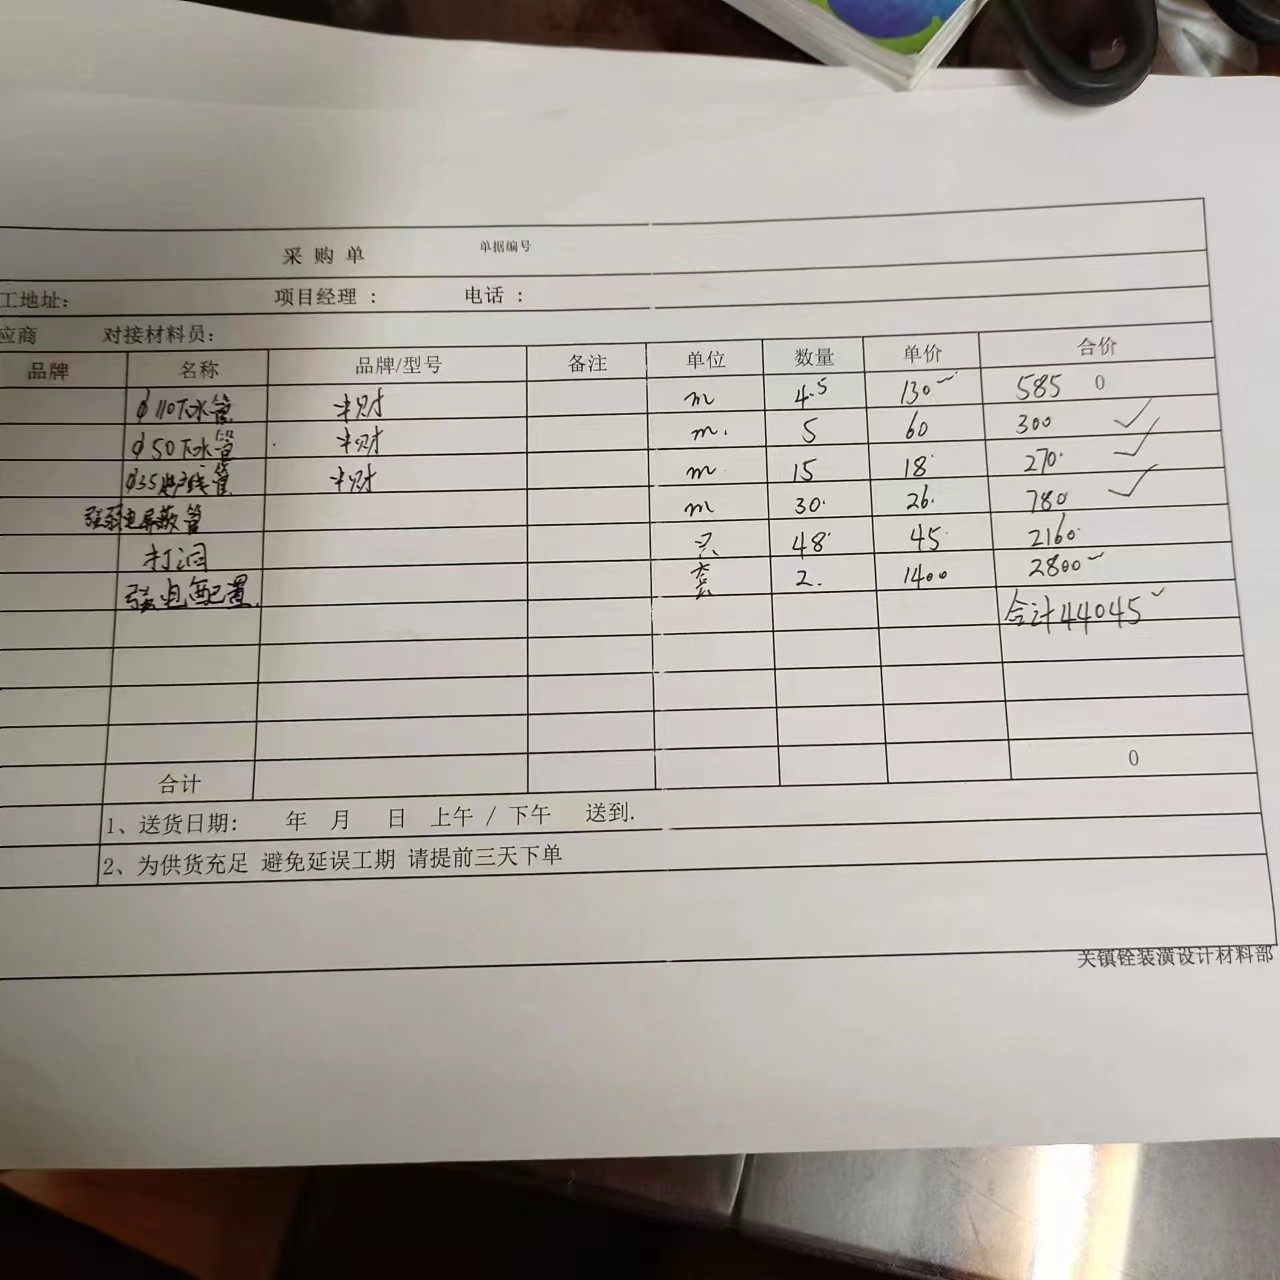 采 购 单 单据编号
工地址： 项目经理 ： 电话 ：
应商 对接材料员：
品牌 名称 品牌/型号 备注 单位 数量 单价 合价
φ110下水管 m 4.5 130 585 0
φ50下水管 m. 5 60 300
φ35 线管 m 15 18 270
强弱电屏蔽管 m 30 26 780
打洞 只 48 45 2160
强电配置 套 2. 1400 2800
合计44045
0
合计
1、送货日期： 年 月 日 上午 / 下午 送到.
2、为供货充足 避免延误工期 请提前三天下单
关镇铨装潢设计材料部